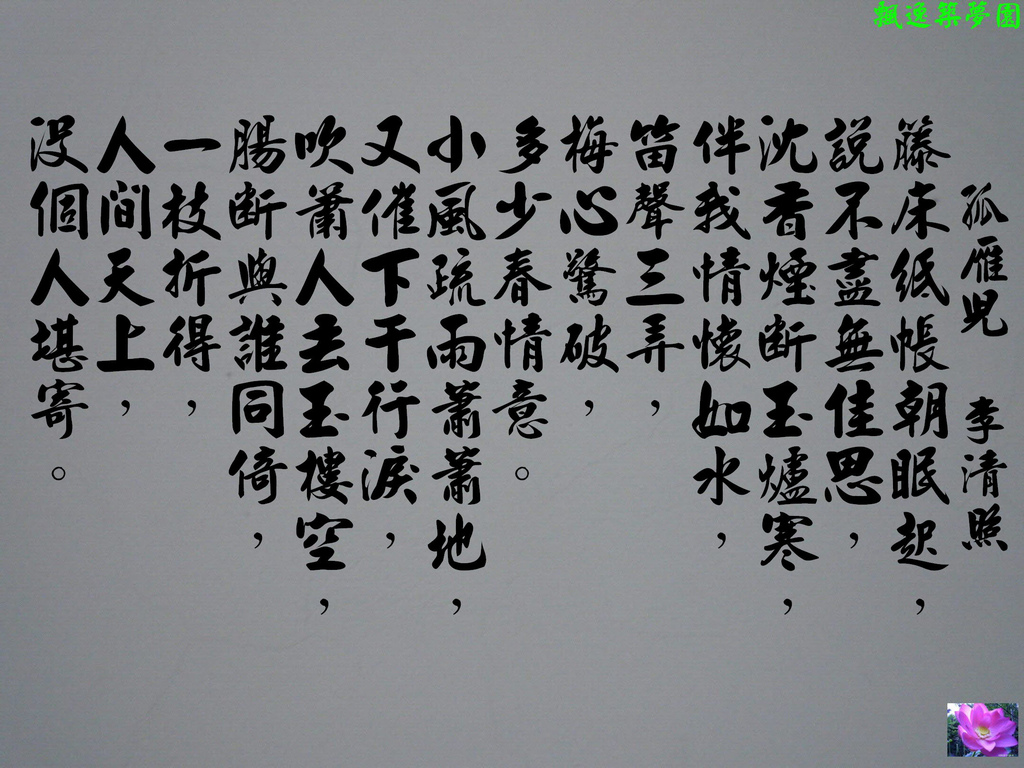 飄逸築夢園
孤雁兒 李清照
籐床紙帳朝眠起，
說不盡無佳思，
沈香煙断玉爐寒，
伴我情懷如水，
笛聲三弄，
梅心驚破，
多少春情意。
小風疏雨蕭蕭地，
又催下千行淚，
吹蕭人去玉樓空，
腸断與誰同倚，
一枝折得，
人間天上，
沒個人堪寄。